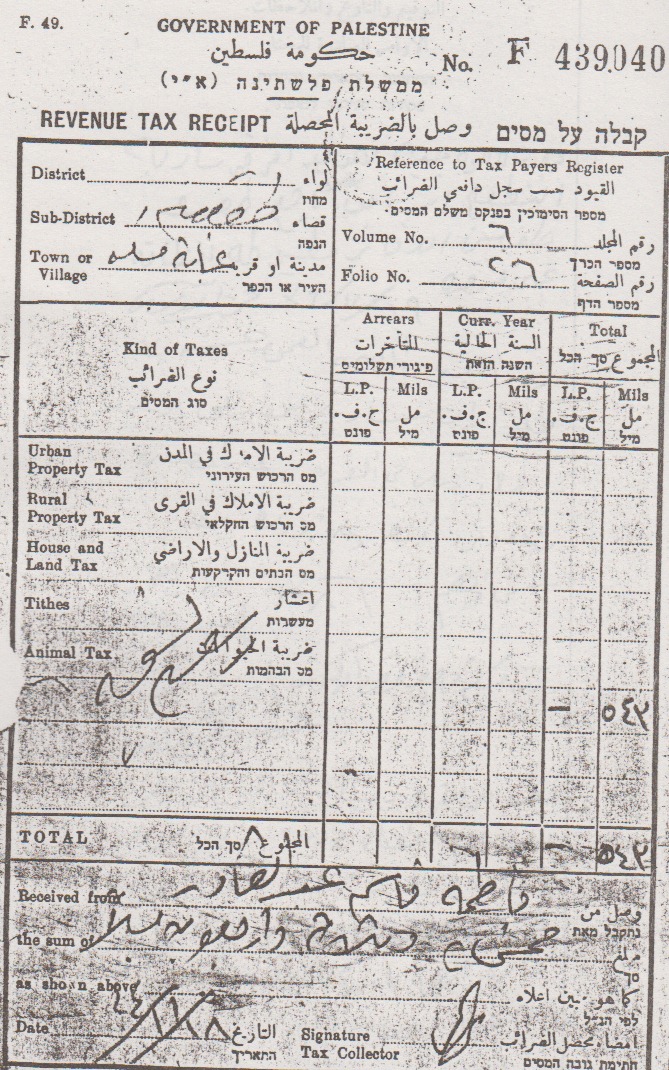 F. 49.
GOVERNMENT OF PALESTINE
حكومة فلسطين
ממשלת פלשתינה (א״י)
No. F 439040
REVENUE TAX RECEIPT وصل بالضريبة المحصلة קבלה על מסים
District لواء
מחוז
Sub-District قضاء
הנפה
Town or Village مدينة او قرية
העיר או הכפר
Reference to Tax Payers Register
القيود حسب سجل دافعي الضرائب
מספר הסימוכין בפנקס משלם המסים.
Volume No. ٦ رقم المجلد
מספר הכרך
Folio No. ٢٦ رقم الصفحة
מספר הדף
Kind of Taxes
نوع الضرائب
סוג המסים
Arrears
المتأخرات
פיגורי תשלומים
Curr. Year
السنة الحالية
השנה הזאת
Total
المجموع סך הכל
L.P. Mils L.P. Mils L.P. Mils
ج.ف. مل ج.ف. مل ج.ف. مل
פונט מיל פונט מיל פונט מיל
Urban Property Tax ضريبة الاملاك في المدن
מס הרכוש העירוני
Rural Property Tax ضريبة الاملاك في القرى
מס הרכוש החקלאי
House and Land Tax ضريبة المنازل والاراضي
מס הבתים והקרקעות
Tithes اعشار
מעשרות
Animal Tax ضريبة الحيوانات
מס הבהמות
— ٥٤٣
TOTAL المجموع סך הכל — ٥٤٣
Received from فاطمة قاسم عبد القادر وصل من
נתקבל מאת
the sum of خمسماية وثلاثة واربعون ملا مبلغ
סך
as shown above كما هو مبين اعلاه
לפי הנ״ל
Date التاريخ
התאריך
Signature Tax Collector امضاء محصل الضرائب
חתימת גובה המסים